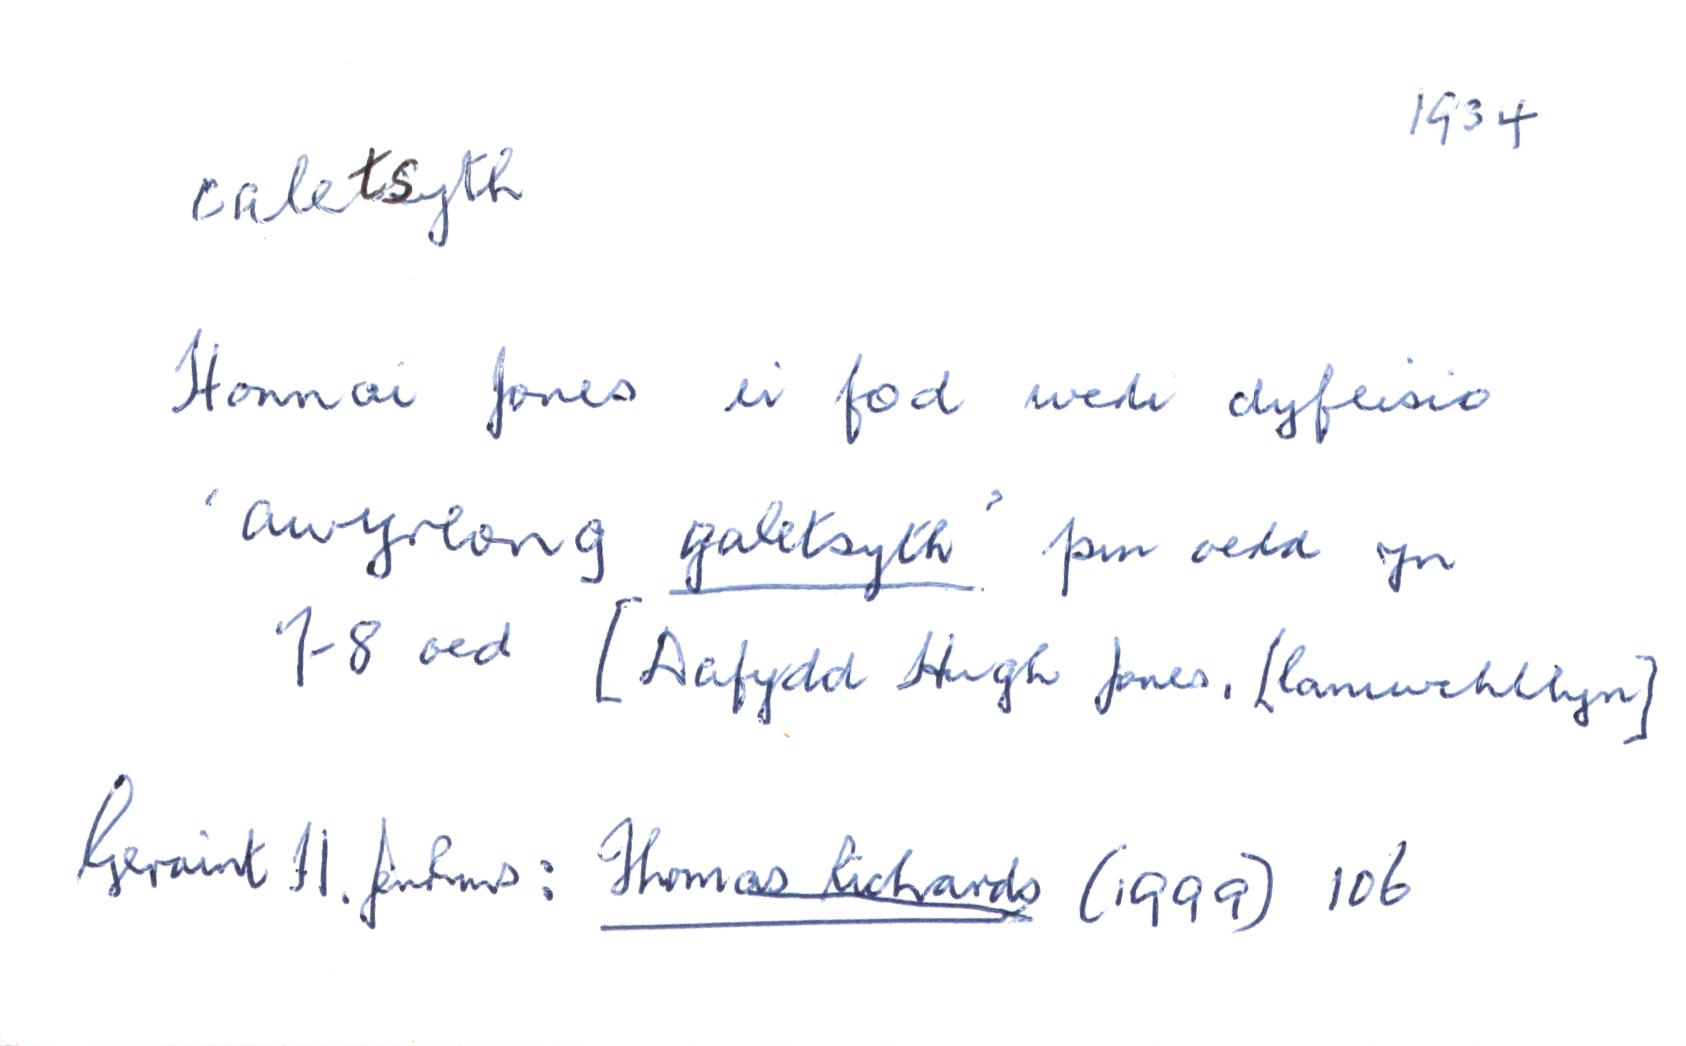 1934
caletsyth
Honnai Jones ei fod wedi dyfeisio
'awyrlong galetsyth' pan oedd yn
7-8 oed [Dafydd Hugh Jones, Llanuwchllyn]
Geraint H. Jenkins: Thomas Richards (1999) 106